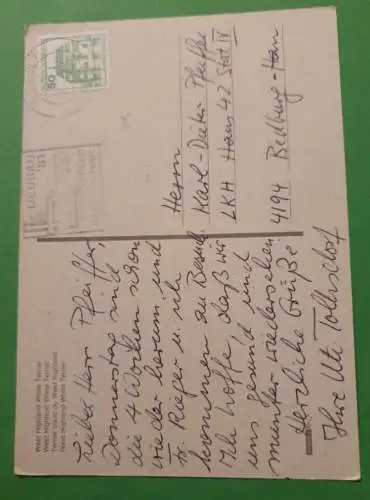 West Highland White Terrier
West Highland White Terrier
Terrier blanc du West Highland
West Highland White Terrier
Lieber Herr Pfeiffer,
Donnerstag sind
die 4 Wochen schon
wieder herum und
Fr. Rieger u. ich
kommen zu Besuch.
Ich hoffe, daß wir
uns gesund und
munter wiedersehen.
Herzliche Grüße
Ihre Uti Tollsdorf
50
Herrn
Karl-Dieter Pfeiffer
LKH Haus 42 Stat IV
4194 Bedburg-Hau